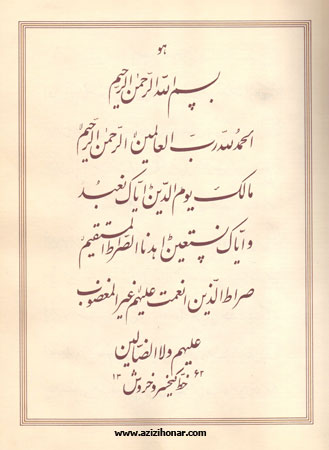 هو
بسم الله الرحمن الرحیم
الحمد لله رب العالمین الرحمن الرحیم
مالک یوم الدین ایاک نعبد
و ایاک نستعین اهدنا الصراط المستقیم
صراط الذین انعمت علیهم غیر المغضوب
علیهم ولا الضالین
خط کیخسرو خروش ۱۳۶۲
www.azizihonar.com